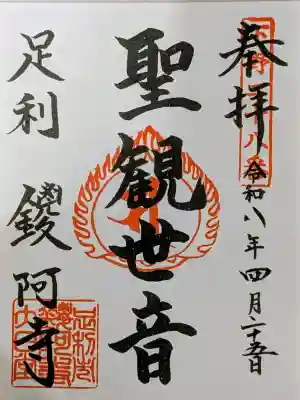 奉拝
令和八年四月二十五日
聖観世音
足利 鑁阿寺